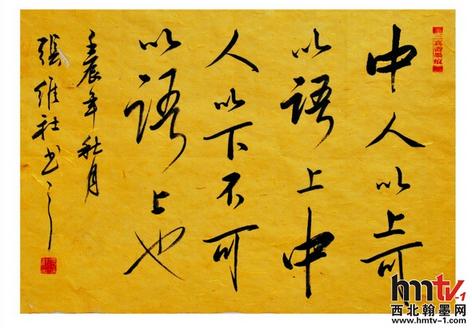 中人以上可
以语上中
人以下不可
以语上也
壬辰年秋月
张维社书
hmtv-1
西北翰墨网
www.hmtv-1.com